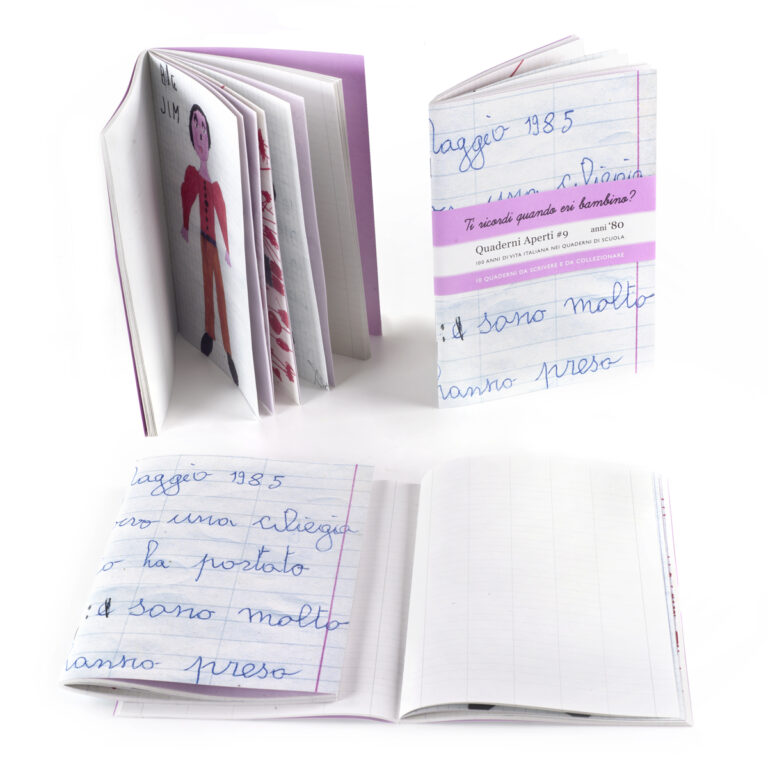 BIG
JIM
Maggio 1985
una ciliegia
Ti ricordi quando eri bambino?
Quaderni Aperti #9 anni '80
100 ANNI DI VITA ITALIANA NEI QUADERNI DI SCUOLA
10 QUADERNI DA SCRIVERE E DA COLLEZIONARE
sono molto
hanno preso
aggio 1985
ero una ciliegia
o ha portato
: sono molto
hanno preso